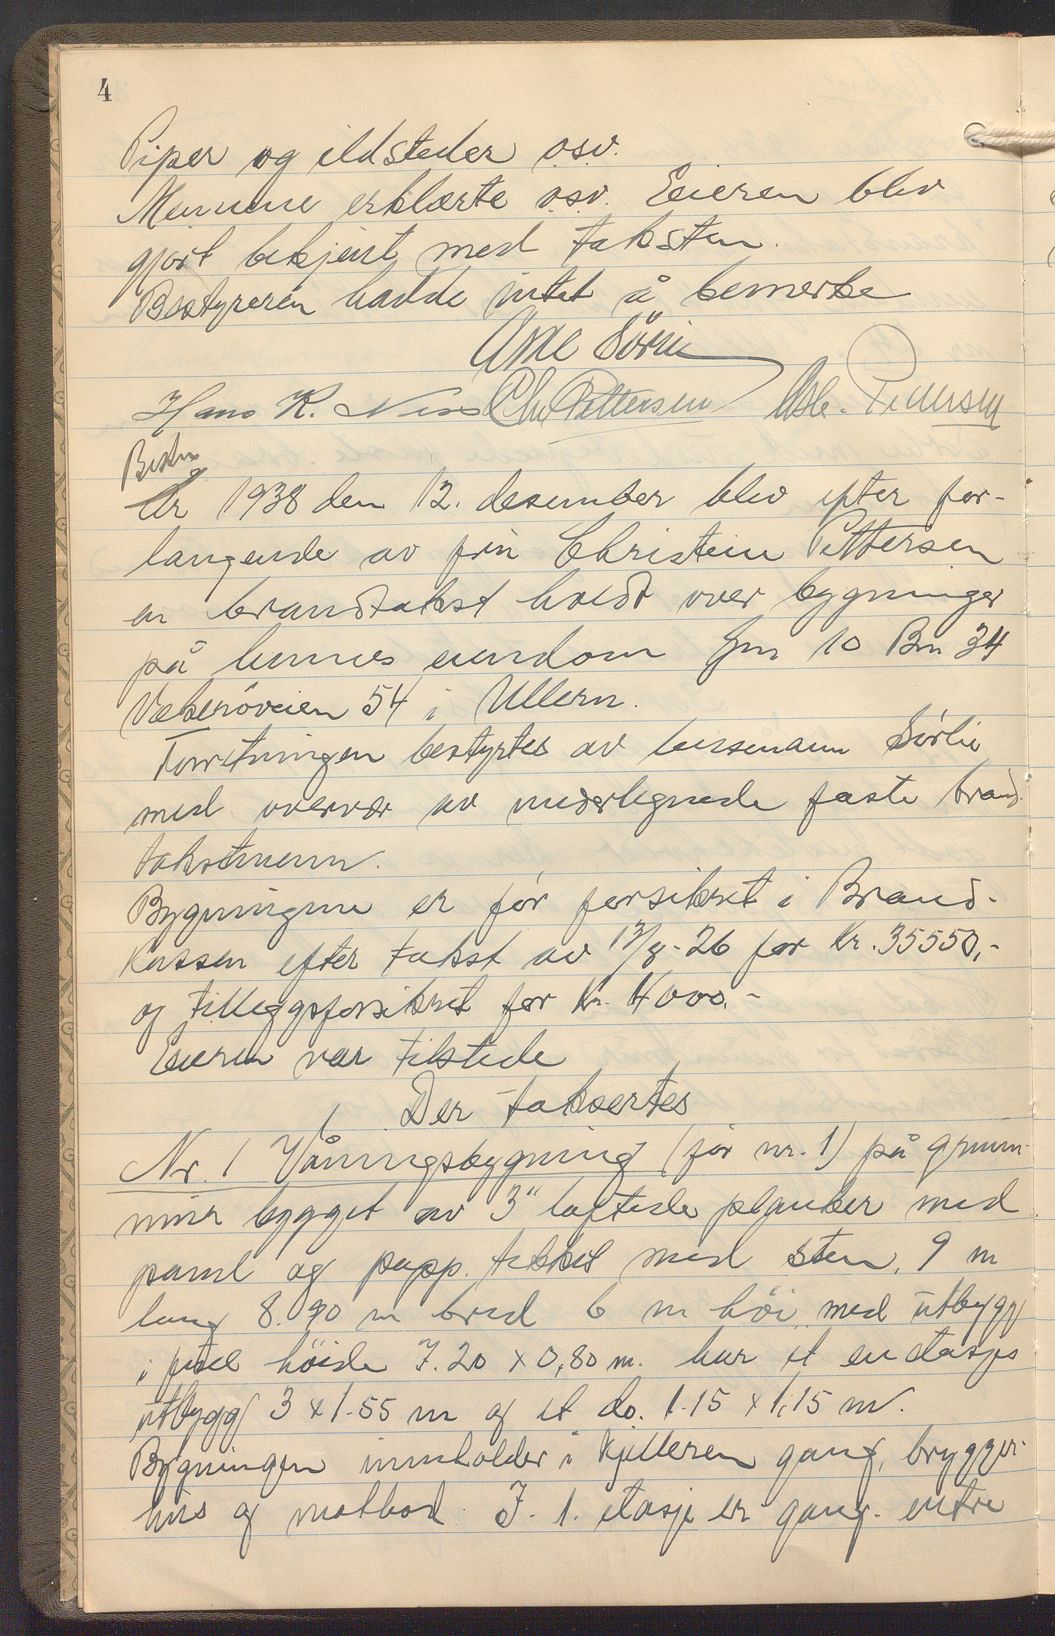 4
Piper og ildsteder osv.
Mennene erklærte osv. Eieren blev
gjort bekjent med taksten.
Bestyreren hadde intet å bemerke
Arne Sörlie
Hans K. Chr. Pettersen Asb. Pedersen
Bestn
År 1938 den 12. desember blev efter for-
langende av frk Christein Pettersen
en brandtakst holdt over bygninger
på hennes eiendom Gn 10 Bn 34
Vækeröveien 54 i Ullern.
Forretningen bestyrtes av lensmann Sörlie
med overvær av undertegnede faste brand-
takstmenn.
Bygningene er för forsikret i Brand-
kassen efter takst av 17/8-26 for kr. 35550,-
og tilleggsforsikret for kr. 4000.-
Eieren var tilstede
Der taksertes
Nr. 1 Våningsbygning (för nr. 1) på grunn-
mur bygget av 3" laftede planker med
panel og papp. tekket med sten, 9 m
lang 8.90 m bred 6 m höi, med utbygg
i full höide 7.20 x 0,80 m. har et en etasjes
utbygg 3 x 1.55 m og et do. 1.15 x 1,15 m.
Bygningen innholder i kjelleren gang, brygger-
hus og matbod. I 1. etasje er gang. entre